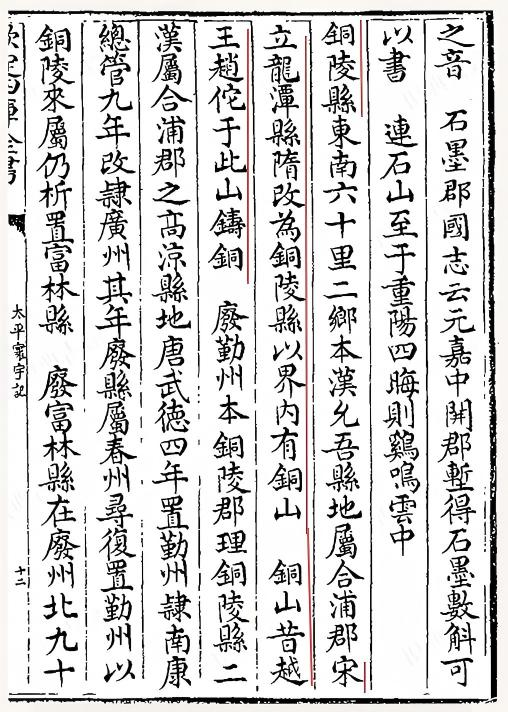 之音　石墨郡國志云元嘉中開郡塹得石墨數斛可
以書　連石山至于重陽四晦則鷄鳴雲中
銅陵縣東南六十里二鄉本漢允吾縣地屬合浦郡宋
立龍潭縣隋改為銅陵縣以界内有銅山　銅山昔越
王趙佗于此山鑄銅　廢勤州本銅陵郡理銅陵縣二
漢屬合浦郡之髙涼縣地唐武徳四年置勤州隷南康
總管九年改隷廣州其年廢縣屬春州尋復置勤州以
銅陵來屬仍析置富林縣　廢富林縣在廢州北九十
欽定四庫全書
太平寰宇記
十二